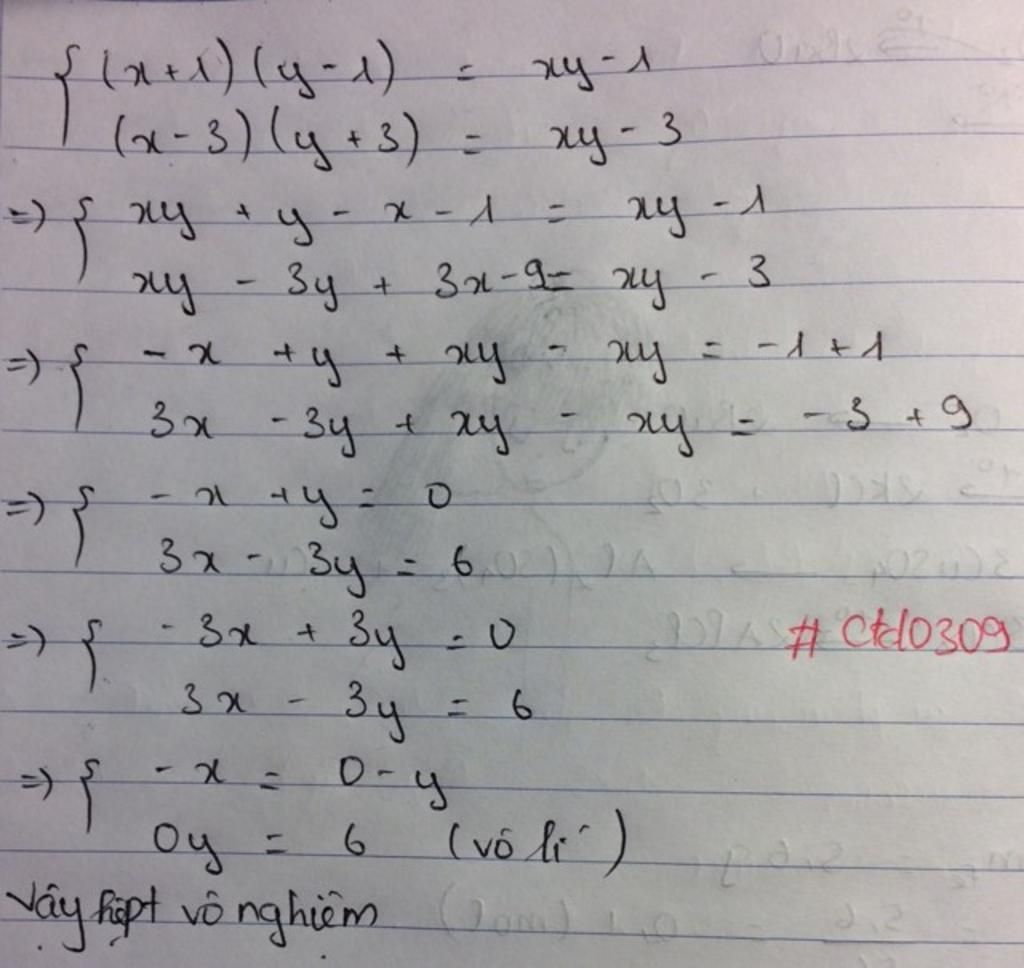 { (x+1)(y-1) = xy-1
(x-3)(y+3) = xy-3
=> { xy + y - x - 1 = xy - 1
xy - 3y + 3x - 9 = xy - 3
=> { - x + y + xy - xy = -1 + 1
3x - 3y + xy - xy = -3 + 9
=> { - x + y = 0
3x - 3y = 6
=> { - 3x + 3y = 0
# Ctd0309
3x - 3y = 6
=> { - x = 0 - y
0y = 6 (vô lí)
Vậy hệpt vô nghiệm